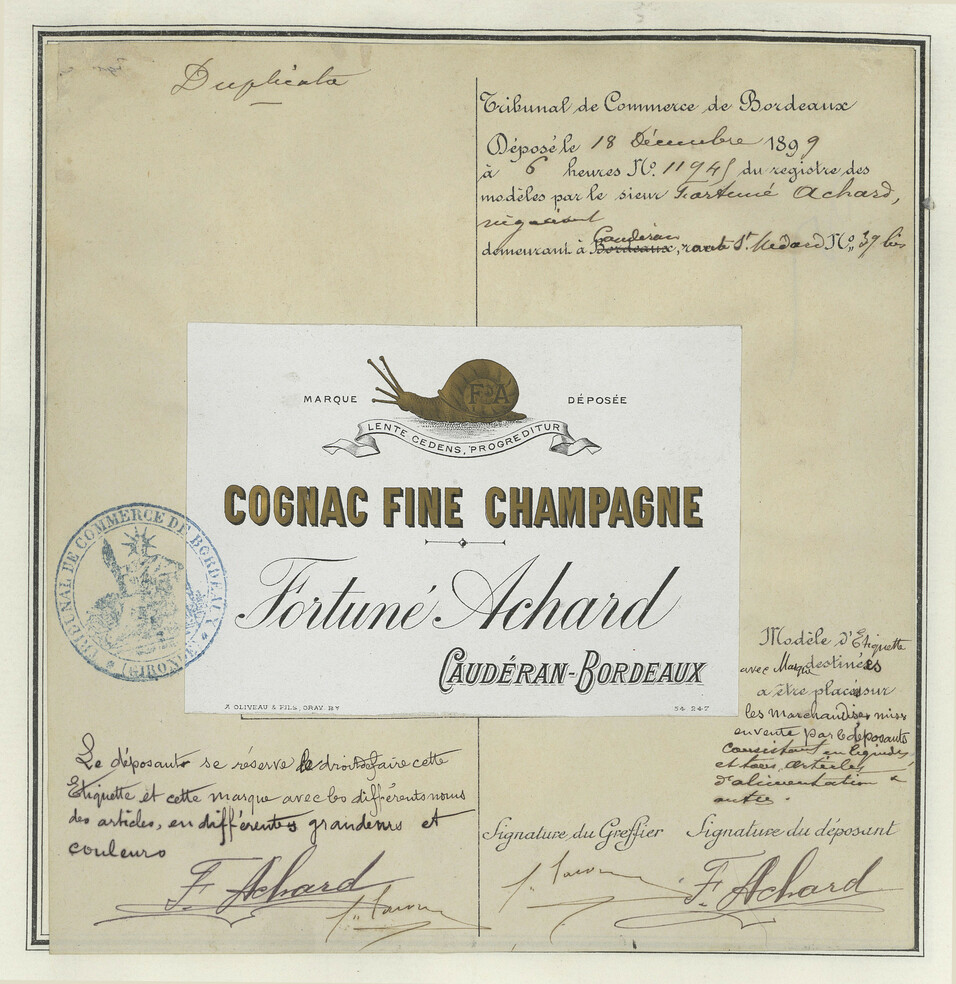 Duplicata
Tribunal de Commerce de Bordeaux
Déposé le 18 Décembre 1899
à 6 heures No. 11945 du registre des
modèles par le sieur Fortuné Achard,
négociant
Caudéran
demeurant à Bordeaux, route St. Médard No. 39 bis
F A
MARQUE DÉPOSÉE
LENTE CEDENS, PROGREDITUR
COGNAC FINE CHAMPAGNE
Fortuné Achard
CAUDÉRAN-BORDEAUX
OLIVEAU & FILS, GRAV. BX
54 247
TRIBUNAL DE COMMERCE DE BORDEAUX
(GIRONDE)
Modèle d'Etiquette
avec Marque destinées
a être placés sur
les marchandises mises
en vente par le déposant
consistant en liquides
et tous articles
d'alimentation &
autres.
Le déposant se réserve le droit de faire cette
Etiquette et cette marque avec les différents noms
des articles, en différentes grandeurs et
couleurs
F. Achard
Signature du Greffier
Signature du déposant
F. Achard